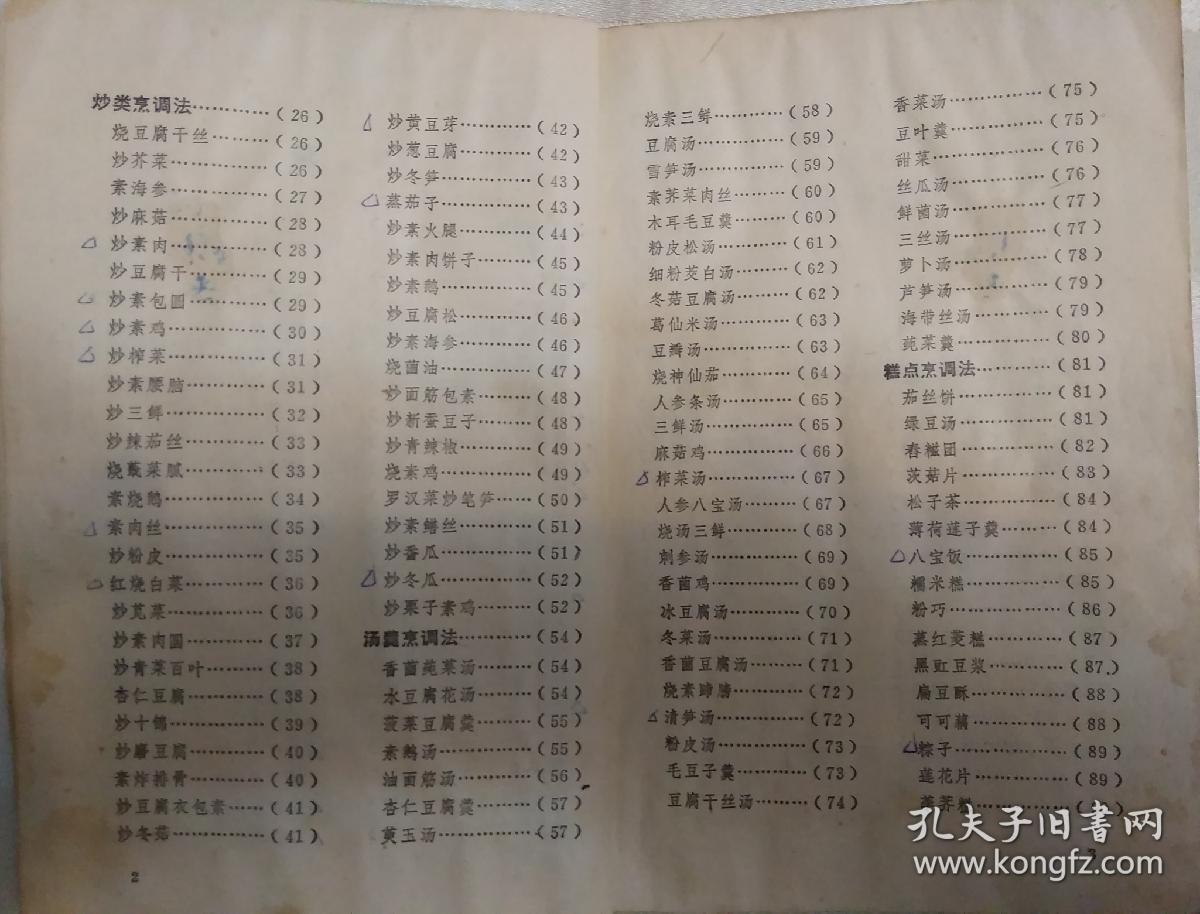 炒类烹调法…………(26)
烧豆腐干丝……(26)
炒芥菜…………(26)
素海参…………(27)
炒麻菇…………(28)
炒素肉…………(28)
炒豆腐干………(29)
炒素包圆………(29)
炒素鸡…………(30)
炒榨菜…………(31)
炒素腰脑………(31)
炒三鲜…………(32)
炒辣茄丝………(33)
烧瓢菜腻………(33)
素烧鹅…………(34)
素肉丝…………(35)
炒粉皮…………(35)
红烧白菜………(36)
炒苋菜…………(36)
炒素肉圆………(37)
炒青菜百叶……(38)
杏仁豆腐………(38)
炒十锦…………(39)
炒磨豆腐………(40)
素炸排骨………(40)
炒豆腐衣包素…(41)
炒冬菇…………(41)
2
炒黄豆芽…………(42)
炒葱豆腐…………(42)
炒冬笋……………(43)
蒸茄子……………(43)
炒素火腿…………(44)
炒素肉饼子………(45)
炒素鹅……………(45)
炒豆腐松…………(46)
炒素海参…………(46)
烧菌油……………(47)
炒面筋包素………(48)
炒新蚕豆子………(48)
炒青辣椒…………(49)
烧素鸡……………(49)
罗汉菜炒笔笋……(50)
炒素鳝丝…………(51)
炒香瓜……………(51)
炒冬瓜……………(52)
炒栗子素鸡………(52)
汤羹烹调法…………(54)
香菌莼菜汤………(54)
水豆腐花汤………(54)
菠菜豆腐羹………(55)
素鹅汤……………(55)
油面筋汤…………(56)
杏仁豆腐羹………(57)
黄玉汤……………(57)
烧素三鲜…………(58)
豆腐汤……………(59)
雪笋汤……………(59)
素荠菜肉丝………(60)
木耳毛豆羹………(60)
粉皮松汤…………(61)
细粉茭白汤………(62)
冬菇豆腐汤………(62)
葛仙米汤…………(63)
豆瓣汤……………(63)
烧神仙茄…………(64)
人参条汤…………(65)
三鲜汤……………(65)
麻菇鸡……………(66)
榨菜汤……………(67)
人参八宝汤………(67)
烧汤三鲜…………(68)
刺参汤……………(69)
香菌鸡……………(69)
冰豆腐汤…………(70)
冬菜汤……………(71)
香菌豆腐汤………(71)
烧素蹄膀…………(72)
清笋汤……………(72)
粉皮汤……………(73)
毛豆子羹…………(73)
豆腐干丝汤………(74)
香菜汤……………(75)
豆叶羹……………(75)
甜菜………………(76)
丝瓜汤……………(76)
鲜菌汤……………(77)
三丝汤……………(77)
萝卜汤……………(78)
芦笋汤……………(79)
海带丝汤…………(79)
莼菜羹……………(80)
糕点烹调法…………(81)
茄丝饼……………(81)
绿豆汤……………(81)
春糍团……………(82)
茨菇片……………(83)
松子茶……………(84)
薄荷莲子羹………(84)
八宝饭……………(85)
糯米糕……………(85)
粉巧………………(86)
蒸红菱糕…………(87)
黑豇豆浆…………(87)
扁豆酥……………(88)
可可藕……………(88)
粽子………………(89)
莲花片……………(89)
孔夫子旧书网
www.kongfz.com